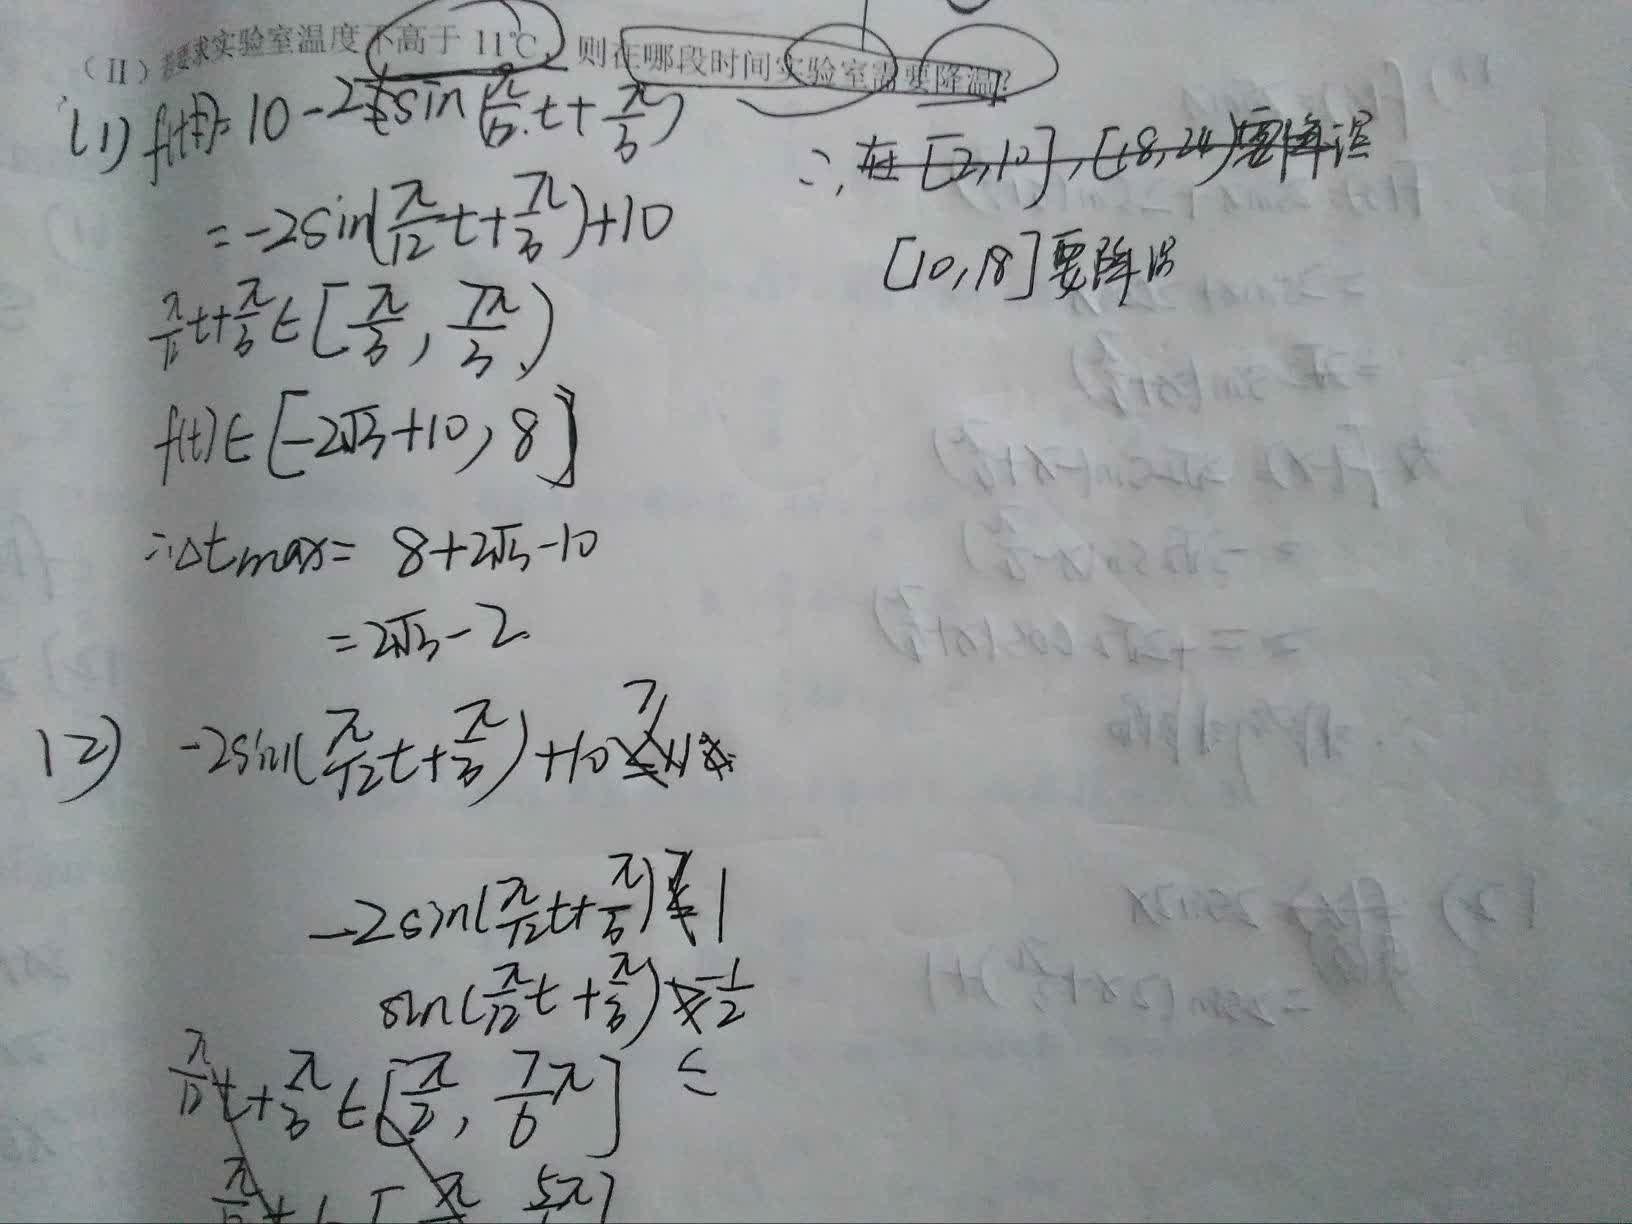 (II)要求实验室温度不高于 11℃,则在哪段时间实验室需要降温?
(1) f(t)=10-2sin(π/12 t+π/3)
=-2sin(π/12 t+π/3)+10
π/12 t+π/3∈[π/3, 7π/3)
f(t)∈[-2√3+10, 8]
∴Δtmax= 8+2√3-10
=2√3-2
(2) -2sin(π/12 t+π/3)+10>11
-2sin(π/12 t+π/3)>1
sin(π/12 t+π/3) -1/2
≤
π/12 t+π/3∈[π/2, 7/6 π]
∴,在[2,10],[18,24)要降温
[10,18]要降温